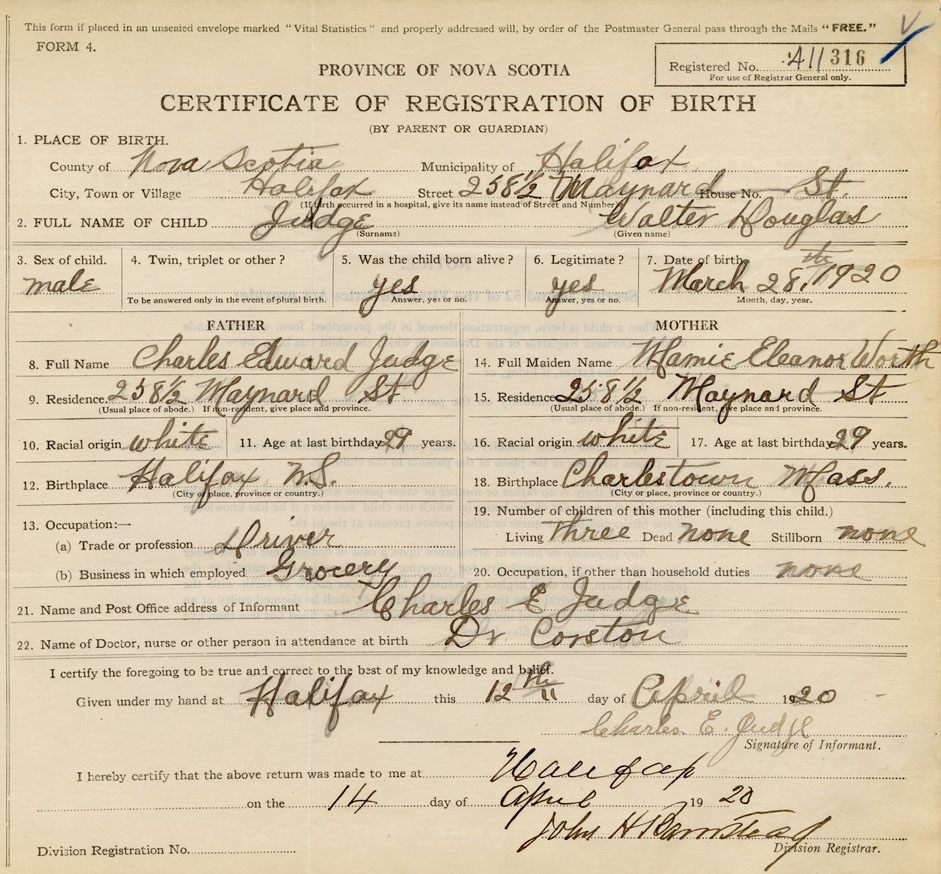 This form if placed in an unsealed envelope marked "Vital Statistics" and properly addressed will, by order of the Postmaster General pass through the Mails "FREE."
FORM 4.
Registered No. A11316
For use of Registrar General only.
PROVINCE OF NOVA SCOTIA
CERTIFICATE OF REGISTRATION OF BIRTH
(BY PARENT OR GUARDIAN)
1. PLACE OF BIRTH.
County of Nova Scotia Municipality of Halifax
City, Town or Village Halifax Street 258½ Maynard House No. St.
(If birth occurred in a hospital, give its name instead of Street and Number)
2. FULL NAME OF CHILD Judge Walter Douglas
(Surname) (Given name)
3. Sex of child. 4. Twin, triplet or other? 5. Was the child born alive? 6. Legitimate? 7. Date of birth
male yes yes March 28th 1920
To be answered only in the event of plural birth. Answer, yes or no. Answer, yes or no. Month, day, year.
FATHER MOTHER
8. Full Name Charles Edward Judge 14. Full Maiden Name Mamie Eleanor Worth
9. Residence 258½ Maynard St 15. Residence 258½ Maynard St
(Usual place of abode.) If non-resident, give place and province. (Usual place of abode.) If non-resident, give place and province.
10. Racial origin white 11. Age at last birthday 29 years. 16. Racial origin white 17. Age at last birthday 29 years.
12. Birthplace Halifax N.S. 18. Birthplace Charlestown Mass.
(City or place, province or country.) (City or place, province or country.)
13. Occupation:— 19. Number of children of this mother (including this child.)
(a) Trade or profession Driver Living Three Dead none Stillborn none
(b) Business in which employed Grocery 20. Occupation, if other than household duties none
21. Name and Post Office address of Informant Charles E Judge
22. Name of Doctor, nurse or other person in attendance at birth Dr Corston
I certify the foregoing to be true and correct to the best of my knowledge and belief.
Given under my hand at Halifax this 12th day of April 1920
Charles E. Judge
Signature of Informant.
I hereby certify that the above return was made to me at Halifax
on the 14 day of April 1920
John H Barnstead
Division Registrar.
Division Registration No.